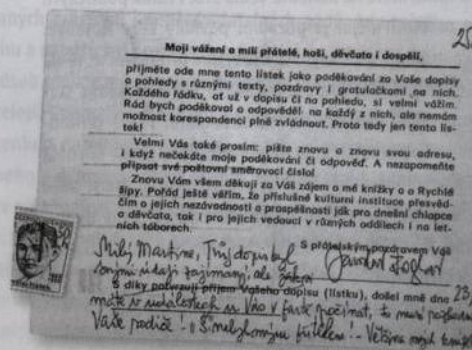 25
Moji vážení a milí přátelé, hoši, děvčata i dospělí,
přijměte ode mne tento lístek jako poděkování za Vaše dopisy
a pohledy s různými texty, pozdravy i gratulačkami na nich.
Každého řádku, ať už v dopisu či na pohledu, si velmi vážím.
Rád bych poděkoval a odpověděl na každý z nich, ale nemám
možnost korespondenci plně zvládnout. Proto tedy jen tento lís-
tek!
Velmi Vás také prosím: pište znovu a znovu svou adresu,
i když nečekáte moje poděkování či odpověď. A nezapomeňte
připsat své poštovní směrovací číslo!
Znovu Vám všem děkuji za Váš zájem o mé knížky a o Rychlé
šípy. Pořád ještě věřím, že příslušné kulturní instituce přesvěd-
čím o jejich nezávadnosti a prospěšnosti jak pro dnešní chlapce
a děvčata, tak i pro jejich vedoucí v různých oddílech i na let-
ních táborech.
S přátelským pozdravem Váš
Milý Martine, Tvůj dopis byl Jaroslav Foglar
svými údaji zajímavý, ale
S díky potvrzuji příjem Vašeho dopisu (lístku), došel mně dne 23.
máte v událostech u Vás v
Vaše podiče! - Většina mých